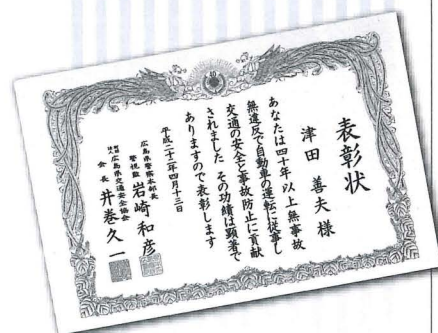 表彰状
津田 善夫様
あなたは四十年以上無事故
無違反で自動車の運転に従事し
交通の安全と事故防止に貢献
されました その功績は顕著で
ありますので表彰します
平成二十二年四月十三日
広島県警察本部長
警視監 岩崎和彦
財団法人 広島県交通安全協会
会長 井巻久一